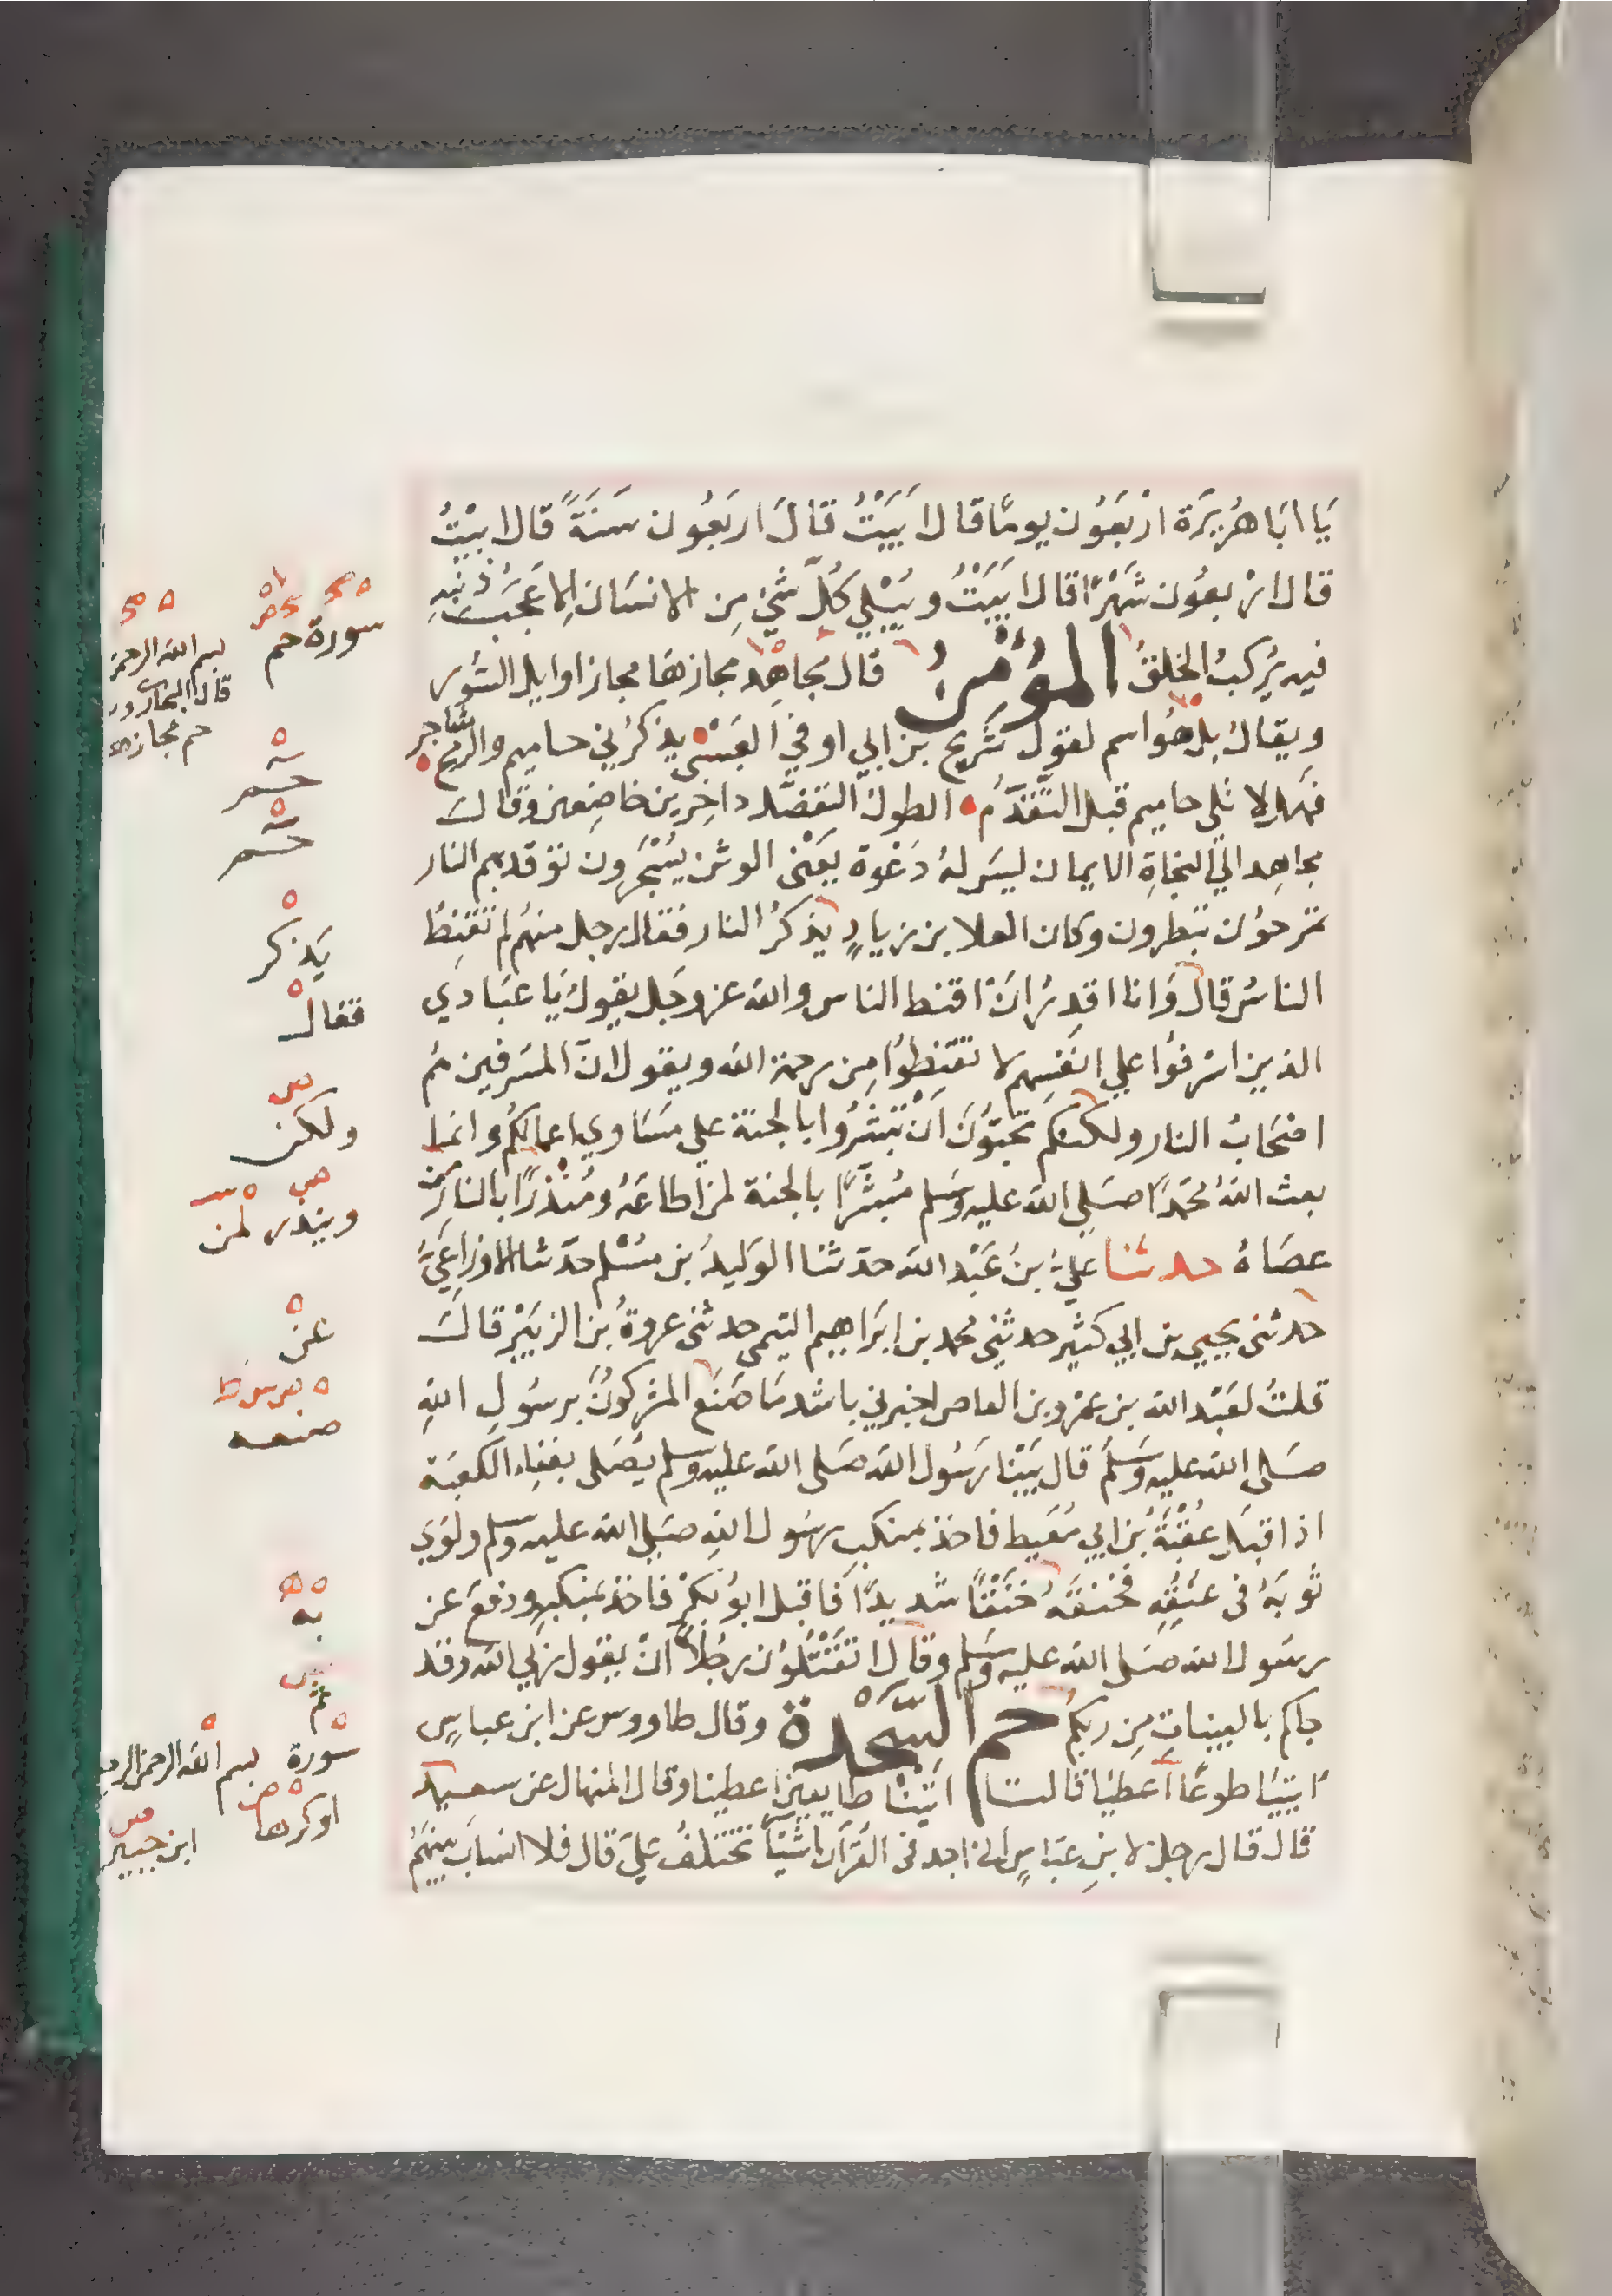 يَا ابَا هُرَيرَة ارْبَعُون يومًا قال ابَيَتْتُ قالَ اربَعُون سَنَةً قال ابيْتُ
قال ارْبعُون شَهْرًا قال ابَيَتْتُ ويَبْلي كُلّ شَيْ مِن الانسَان اِلا عَجْبَ ذنبِه
فيه يُركبُ الخلقُ المؤمنُ قال مجاهِد مجازهَا مجاز اوايل السُور
ويقالُ بل هُوَ اسم لقول شريح بن ابي اوفي العَبْسِي يذكرُني حاميم والرمح شاجر
فهلا تلي حاميم قبل التَّقَدُّمِ الطول التفضّل داخِرين خاضِعين وقالَ
مجاهِد الي النجاةِ الايمان ليسَ لهُ دَعْوة يَعْني الوثن يُسْجَرون توقد بهم النار
تمرحُون تبطرون وكان العلا بن زيادٍ يَذكرُ النار فقال رجل منهُم لم تقنِطُ
الناسَ قال وَانا اقدِرُ انْ اقنط الناس والله عز وجَل يقولُ يَا عبَادي
الذين اسْرفوُا علي انفسِهِم لا تقنَطُوا مِن رحمة الله ويقول انّ المسْرفين هُم
اصْحَابُ النار ولكنكم تحبّوُنَ اَنْ تُبَشَّرُوا بالجنة علي مسَاوي اعمالِكُم وانما
بعث اللهُ محمّدًا صَلي الله عليه وسَلم مُبشرًا بالجنة لمن اطاعَهُ ومُنْذِرًا بالنارِ من
عصَاهُ حدثنا عليُّ بنُ عَبْد الله حدّثنا الوَليدُ بن مُسْلم حدّثنا الاوزاعيُّ
حدثنى يحيي بن ابي كثير حدثني محمد بن ابرَاهيم التيمي حدثنى عروةُ بن الزبَيْر قالَ
قلتُ لعَبْد الله بن عمْرو بن العاص اخبرني باشد مَا صَنَع المشركوُنَ برسُولِ اللهِ
صَلى الله عليه وسَلَّمَ قال بَيْنَا رَسُول الله صَلى الله عليه وسلم يُصَلى بفنِاء الكعبَة
اذ اقبَل عُقْبَةُ بن ابي مُعَيط فاخذ بمنكبِ رسُول اللهِ صَلي الله عليه وسلم ولوَي
ثوبَهُ فى عنُقِهِ فخنقَهُ خَنْقًا شديدًا فاقبل ابوُ بكرٍ فاخذ بمنكبِهِ ودفعَ عن
رسُول الله صَلى الله عليه وسَلم وقال اتقتُلوُن رجُلاً انْ يقول ربي الله وقد
جاكم بالبيناتِ مِن ربكم حم السَّجْدة وقال طاووس عن ابن عباسٍ
ائتيَا طوعًا اَعطيَا قالتا اتيْنا طايعِينَ اعطينا وقال المنهال عن سعيد
قال قال رجل لابنِ عبّاسٍ اني اجد فى القرآن اشيَآ تختلفُ عليَّ قال فلا انسابَ بينهُم
سورة حم
بسم الله الرحمن
قال البخاري و
حم مجازها
حم
حم
يَذكر
فقال
ولكن
وينذر لمن
عن
صنعه
به
ثم
سورة بسم الله الرحمن الرحيم
او كرها
ابن جبير